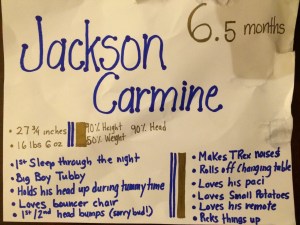 Jackson
6.5 months
Carmine
• 27 3/4 inches
90% Height 90% Head
• 16 lbs 6 oz
50% Weight
• 1st Sleep through the night
• Big Boy Tubby
• Holds his head up during tummy time
• Loves bouncer chair
• 1st/2nd head bumps (sorry bud!)
• Makes TRex noises
• Rolls off changing table
• Loves his paci
• Loves Small Potatoes
• Loves his remote
• Picks things up